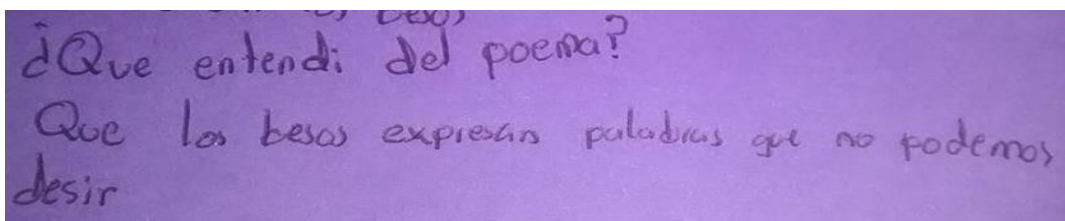 besos
¿Que entendi del poema?
Que los besos expresan palabras que no podemos
desir